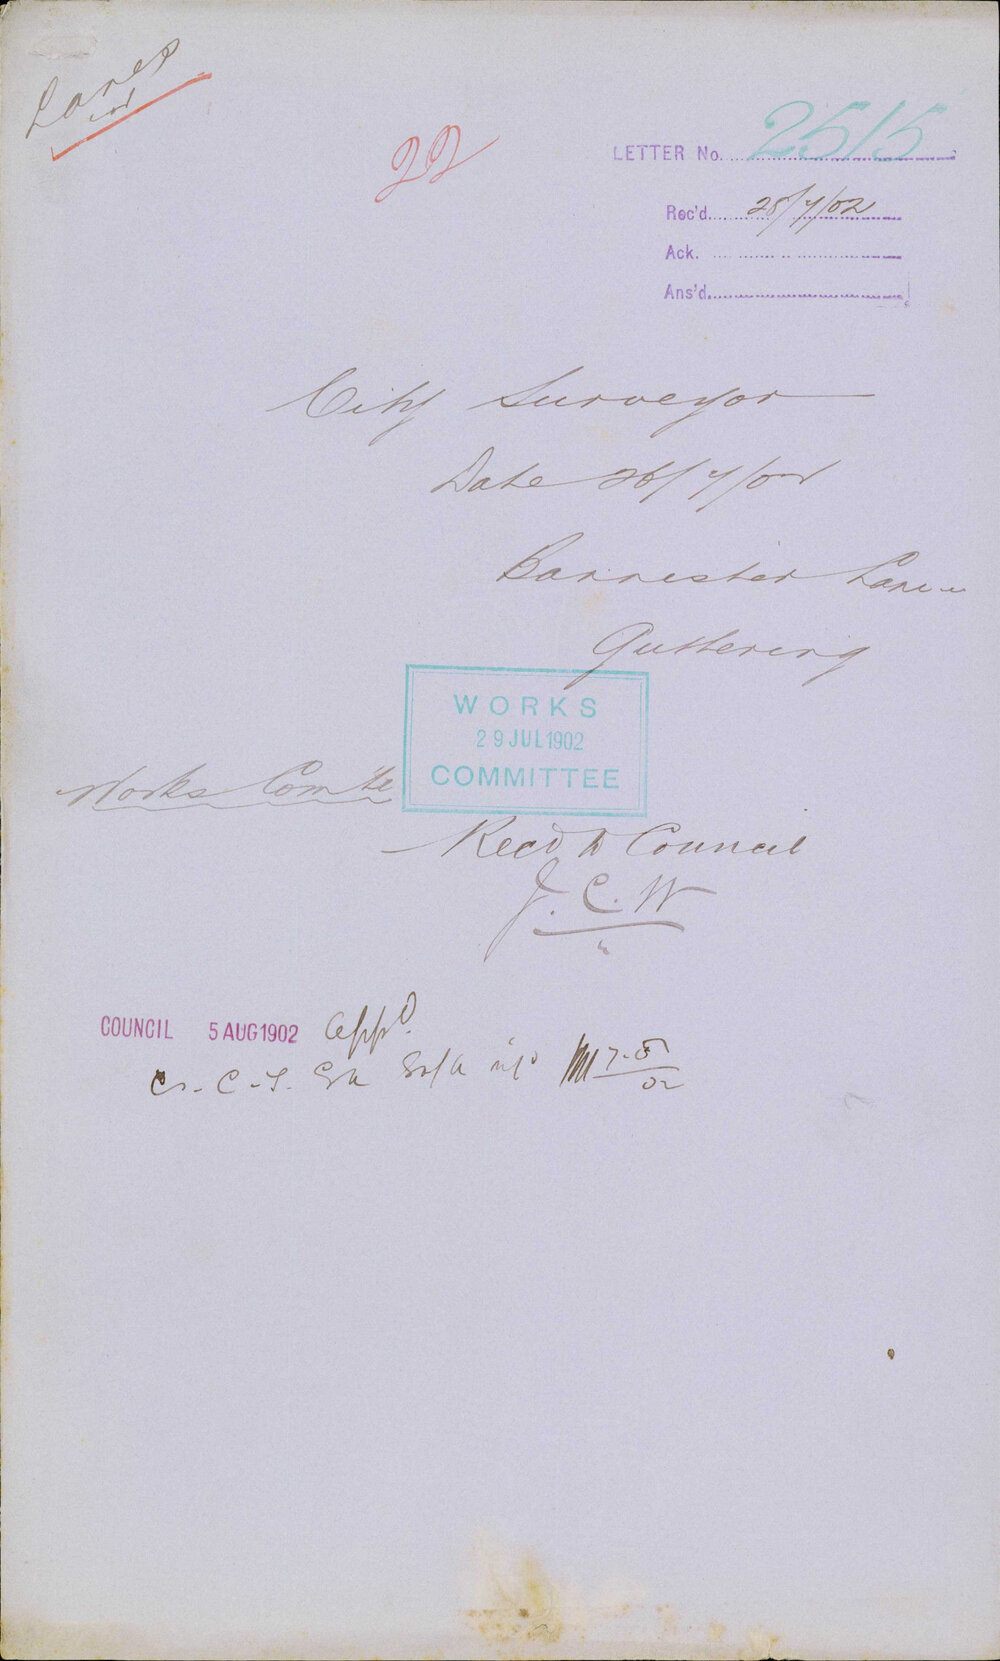 Lanes
22
LETTER No. 2515
Rec'd. 28/7/02
Ack.
Ans'd.
City Surveyor
Date 26/7/02
Bannister Lane
Guttering
WORKS
29 JUL 1902
COMMITTEE
Works Comtte
Recd to Council
J. C. W
COUNCIL 5 AUG 1902 Appd.
7.8/02